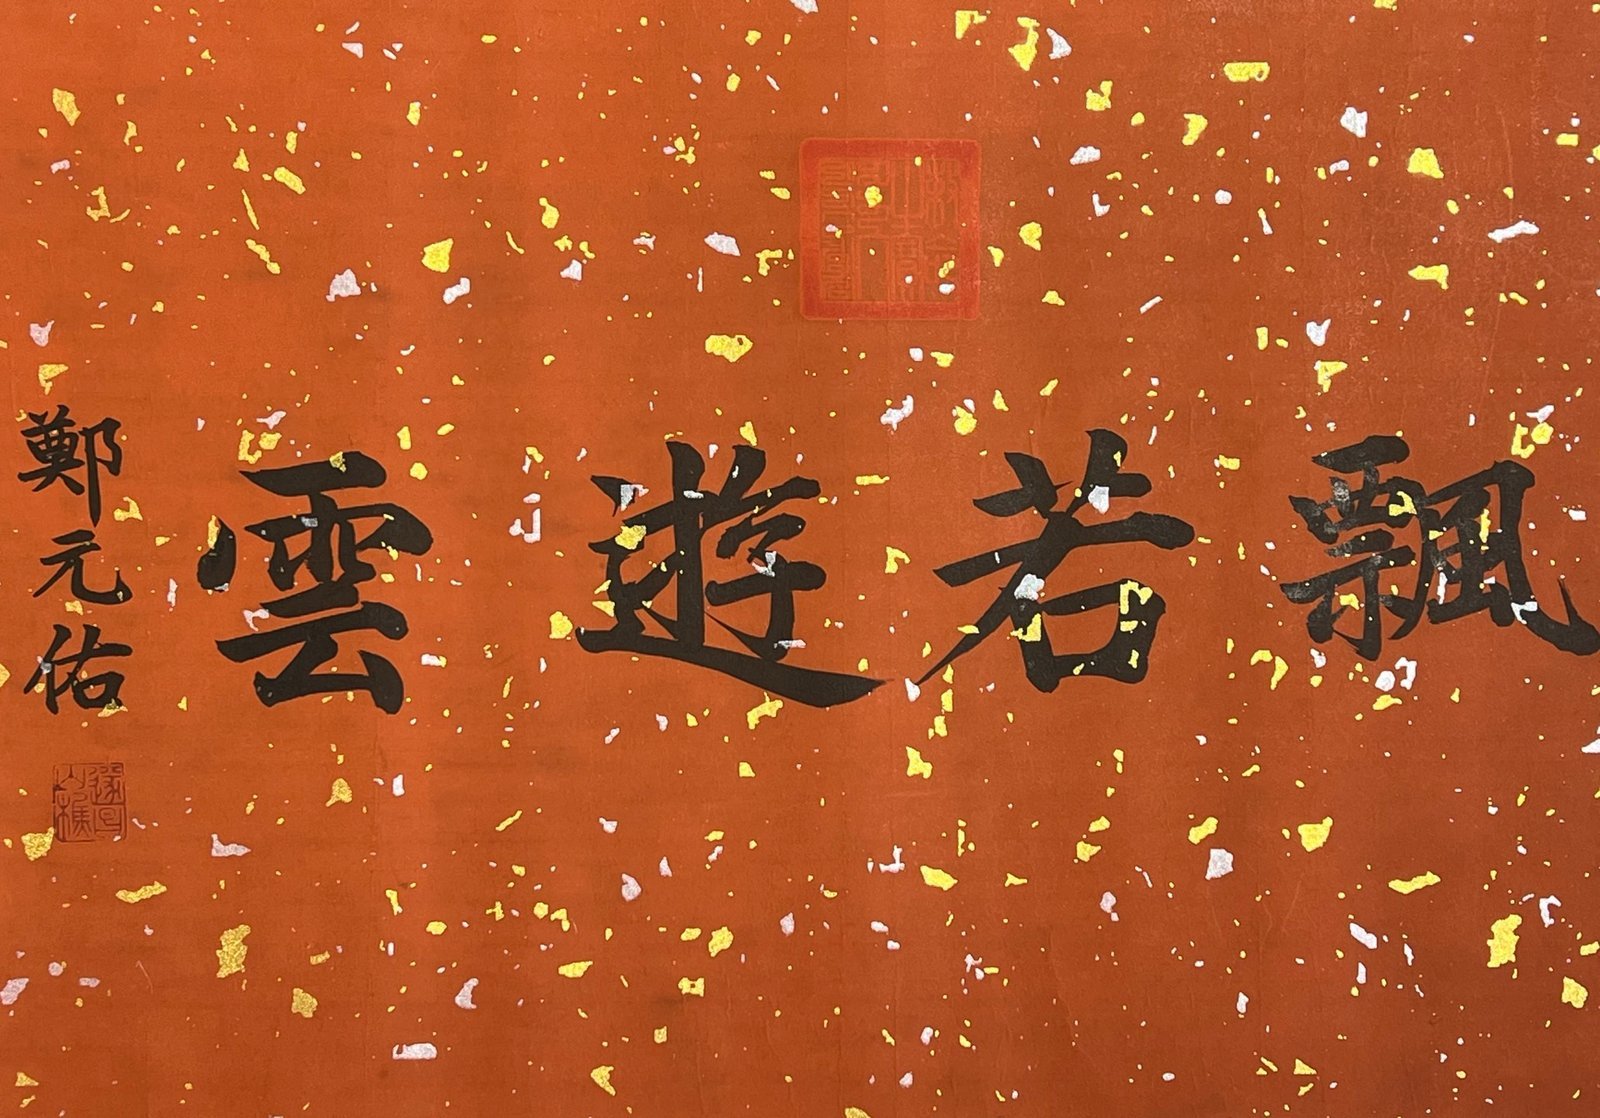 飄若遊雲
鄭元佑